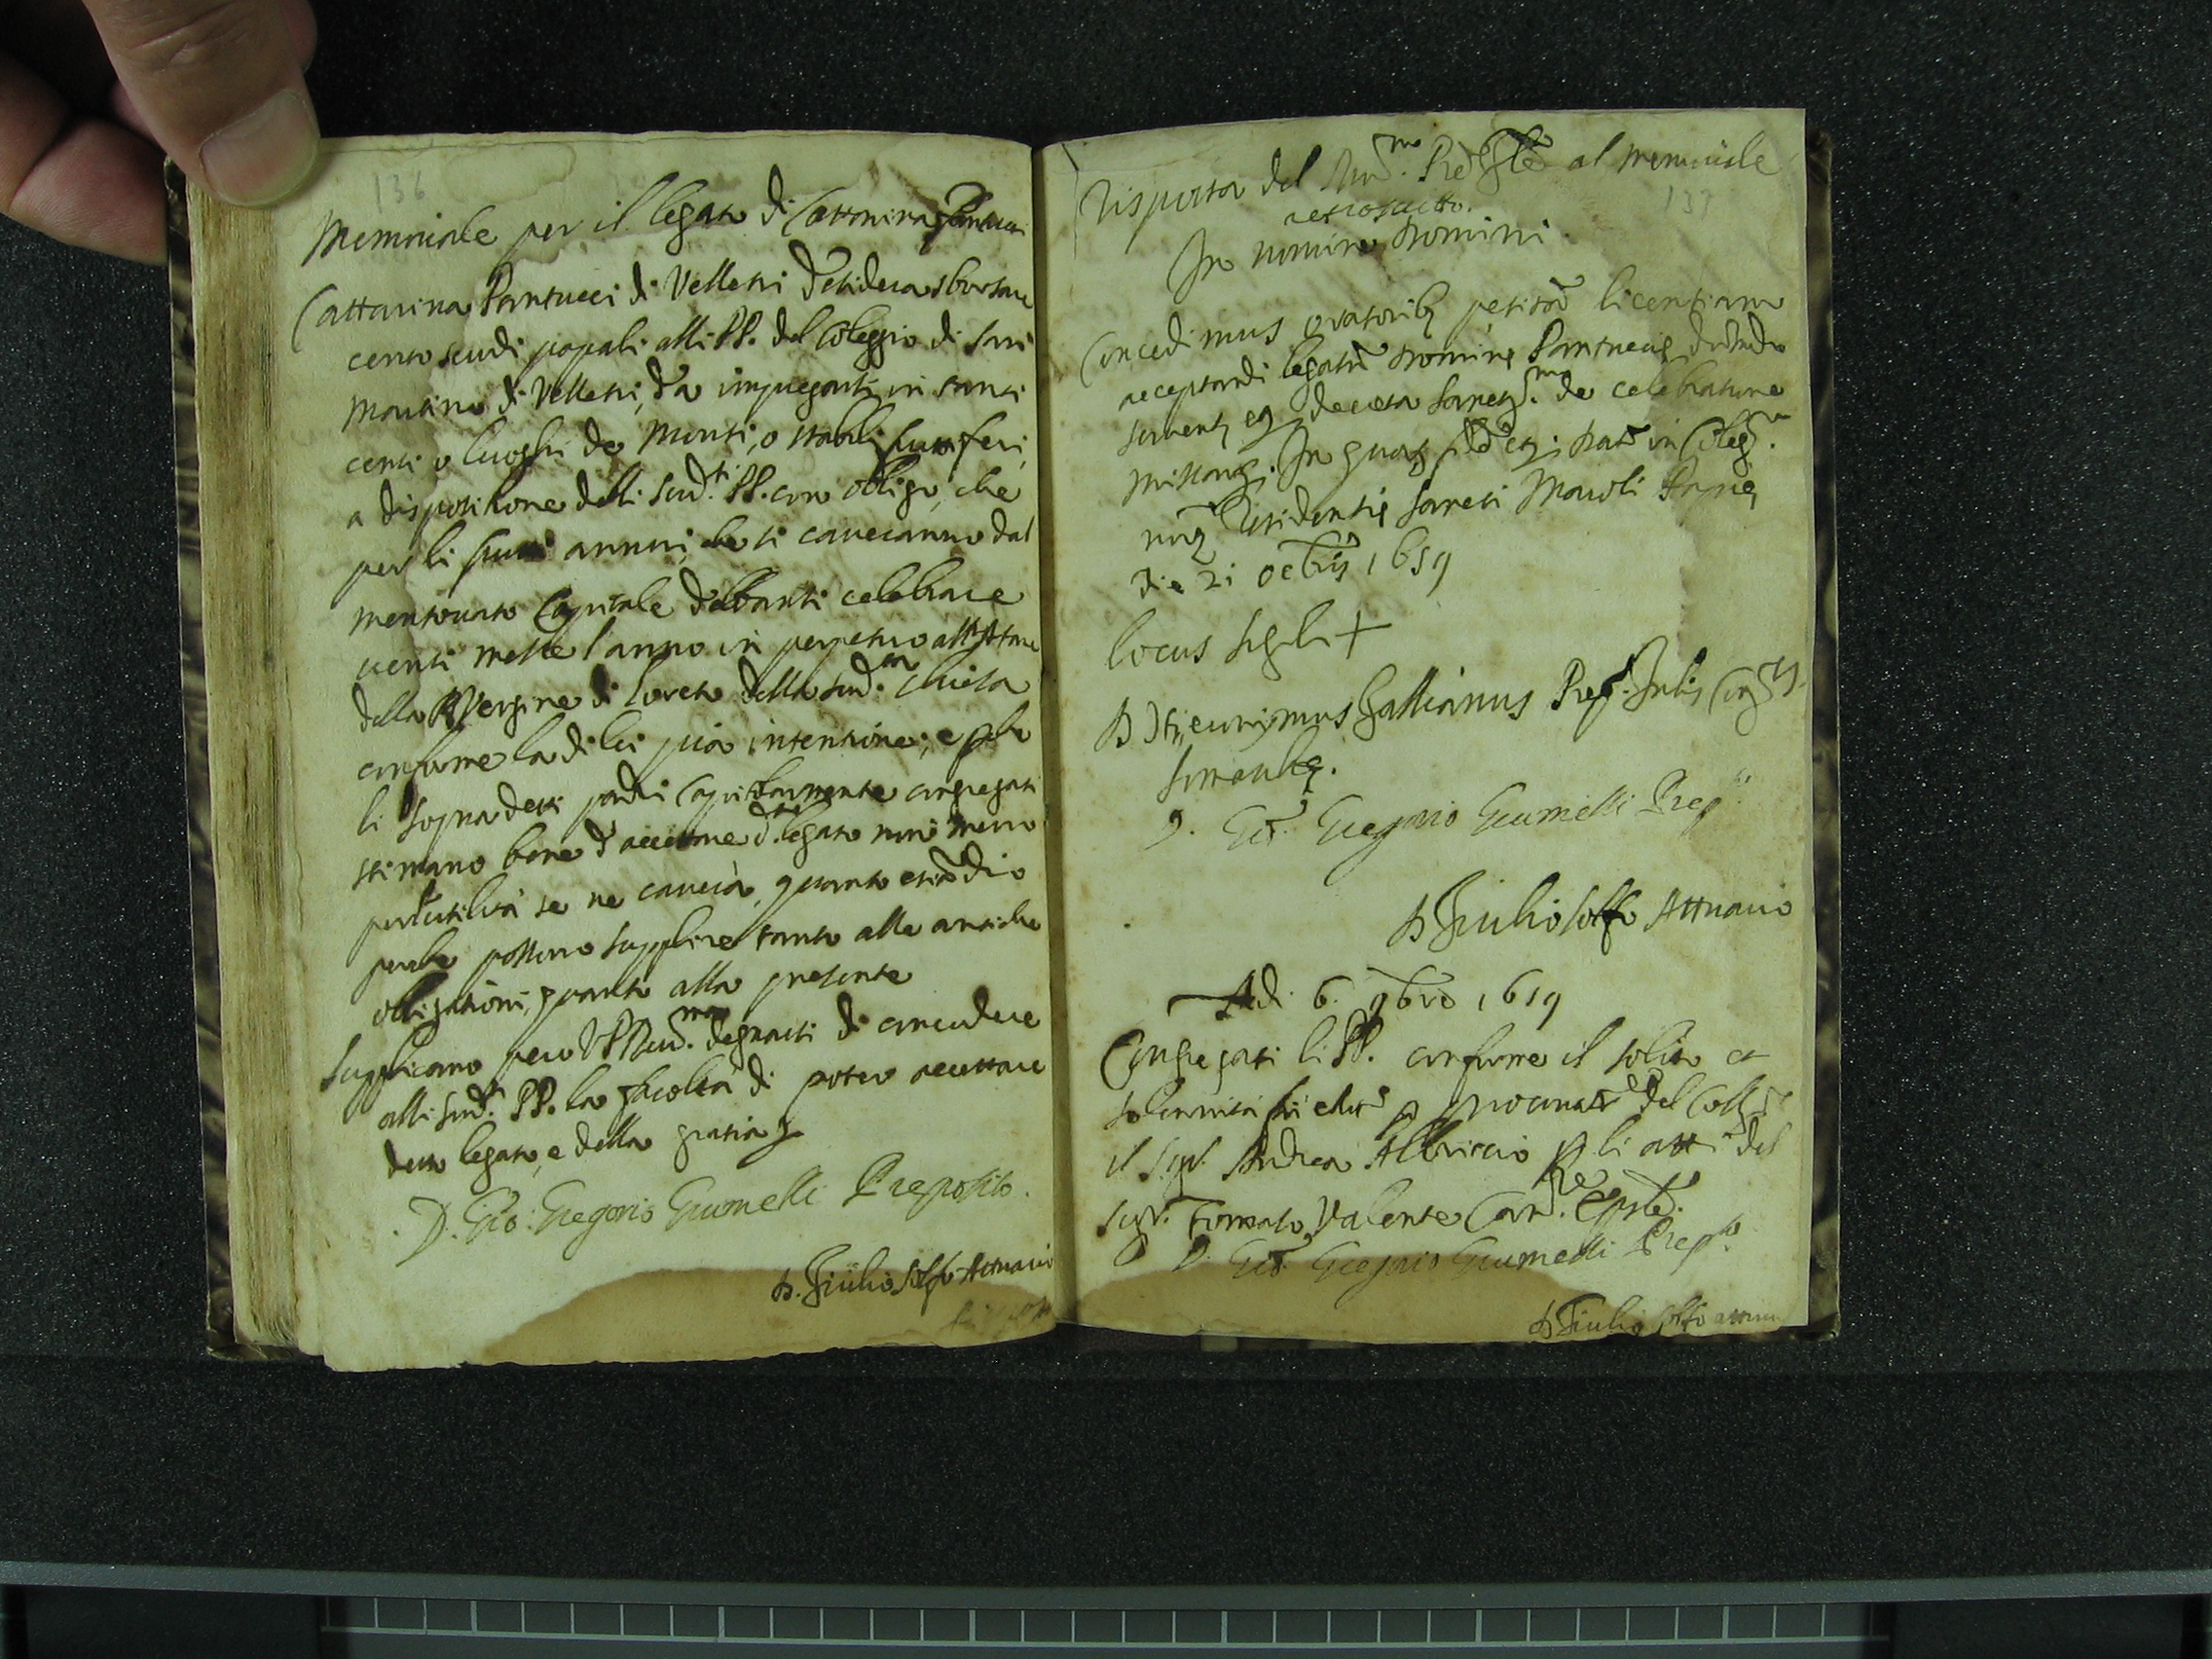 136
Memoriale per il legato di Cattarina Pantucci
Cattarina Pantucci di Velletri desidera sborsare
cento scudi papali alli PP. del Coleggio di San
Martino di Velletri, da impiegarsi in tanti
censi o luoghi de Monti, o stabili fruttiferi,
a dispositione delli sud.ti PP. con obligo, che
per li frutti annui, che si caveranno dal
mentovato Capitale debbansi celebrare
venti messe l'anno in perpetuo all'Altare
della B Vergine di Loreto della sud.ta Chiesa
conforme la di lei pia intentione; e perche
li sopradetti padri Capitolarmente congregati
stimano bene d'accettare d.to legato non meno
per l'utilità se ne caverà, quanto etiãdio
perche possono supplire tanto alle antiche
obligationi, quanto alla presente
Supplicano però V P Reu.ma degnarsi di concedere
alli sud.ti PP. la facoltà di poter accettare
detto legato, e della gratia
D. Gio: Gregorio Grumelli Preposito.
D. Giulio Solfo Attuario
137
Risposta del Reu.mo Prē Gñle al memoriale
retroscritto.
In nomine Domini.
Concedimus oratoribʒ petitā licentiam
acceptandi legatū Dominę Pantucię
servatis decreta Sanctiss.mi de celebratione
missarū. In quorʒ fidē etc. Datū in Coleg.o
nrō Residentię Sancti Maioli Papię
die 21 octbris 1659
Locus Sigilli +
D Hieronymus Gallianus Prep. Gnlis Congnis
Somaschę.
D. Gio. Gregorio Grumelli Prep.to
D Giulio Solfo Attuario
Adi 6. 9bre 1659
Congregati li PP. conforme il solito et
solennità fù eletto p procuratore del Coll.o
il Sigr. Andrea Albriccio p li atti del
Sigr. Tomaso Valente Canre Eple.
D. Gio. Gregorio Grumelli Prep.to
D Giulio Solfo attuario